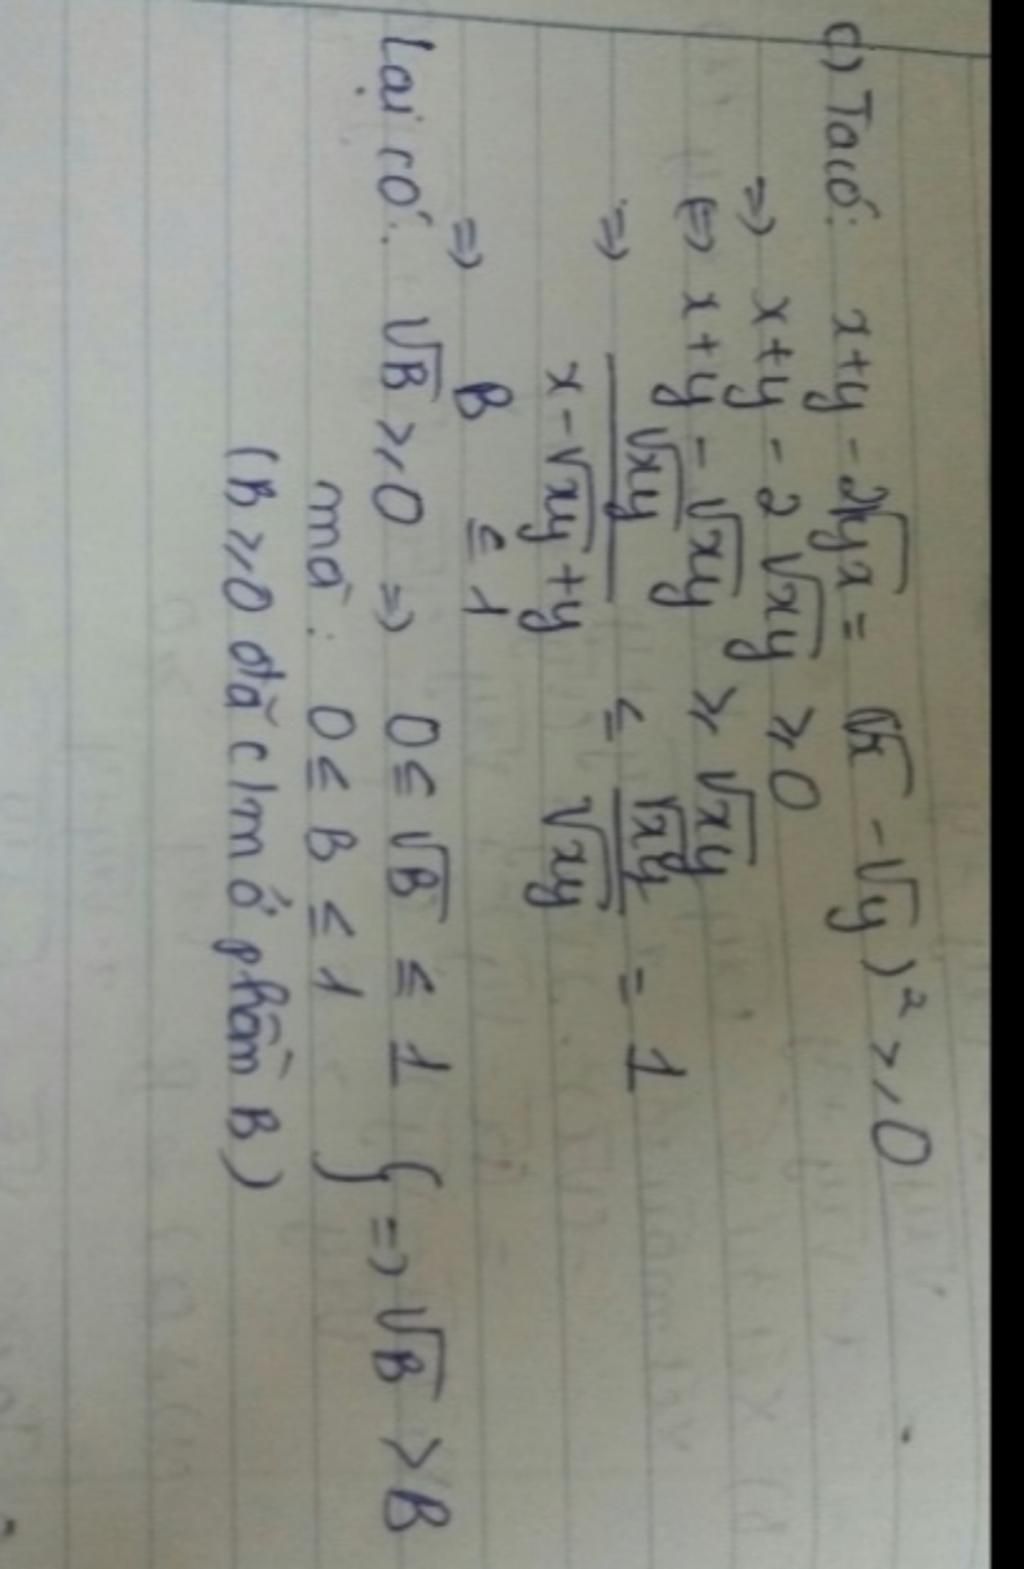 c) Ta có: x+y - 2√yx = (√x - √y)² ≥ 0
=> x+y - 2√xy ≥ 0
<=> x+y - √xy ≥ √xy
=> √xy / (x - √xy + y) ≤ √xy / √xy = 1
=> B ≤ 1
Lại có: √B ≥ 0 => 0 ≤ √B ≤ 1 } => √B > B
mà: 0 ≤ B ≤ 1
(B ≥ 0 đã c/m ở phần B)